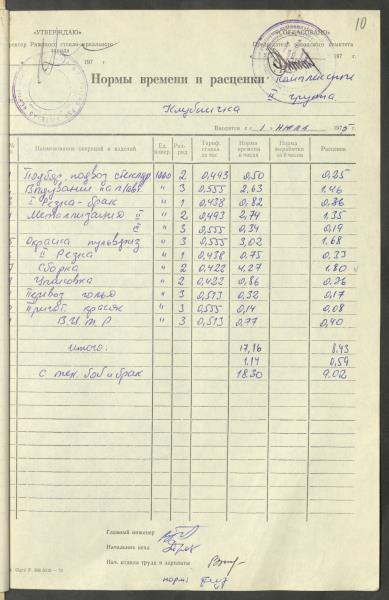 «УТВЕРЖДАЮ» «СОГЛАСОВАНО»
ректор Рижского стекло-зеркального
завода
Председатель заводского комитета
197 г. 197 г.
10
Нормы времени и расценки комплексной
II группа
Клубничка
Вводятся с 1 июля 1975 г.
Наименование операций и изделий Ед. измер. Разряд Тариф. ставка за час Норма времени в часах Норма выработки за 8 часов Расценки
1 2 3 4 5 6 7 8
Подбор, подвоз стеклодр 1000 2 0,493 0,50 0,25
Выдувание на пл/авт " 3 0,555 2,63 1.46
I Резка - брак " 1 0,438 0,82 0,36
Металлизация II " 2 0,493 2,74 1.35
" 3 0.555 0,34 0,19
5 Окраска пульвериз " 3 0,555 3,02 1.68
II Резка " 1 0,438 0.75 0,33
7 Сборка " 2 0,422 4,27 1.80
Упаковка " 2 0,422 0,86 0.36
Перевоз голья " 3 0,513 0,32 0,17
Пригот. красок " 3 0,555 0,14 0,08
В.И.Т.Р " 3 0,513 0,77 0,40
Итого: 17,16 8.43
1.14 0,59
с тех. боя и брак 18.30 9.02
Главный инженер
Начальник цеха
Нач. отдела труда и зарплаты
норм: